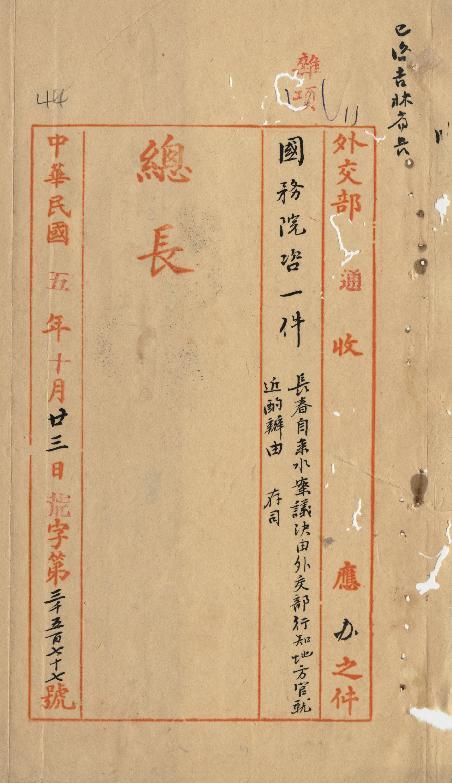 已咨吉林省長
雜項
44
外交部通收 應办之件
國務院咨一件
長春自来水案議決由外交部行知地方官就
近酌辦由 存司
總長
中華民國五年十月廿三日 字第三千五百七十七號